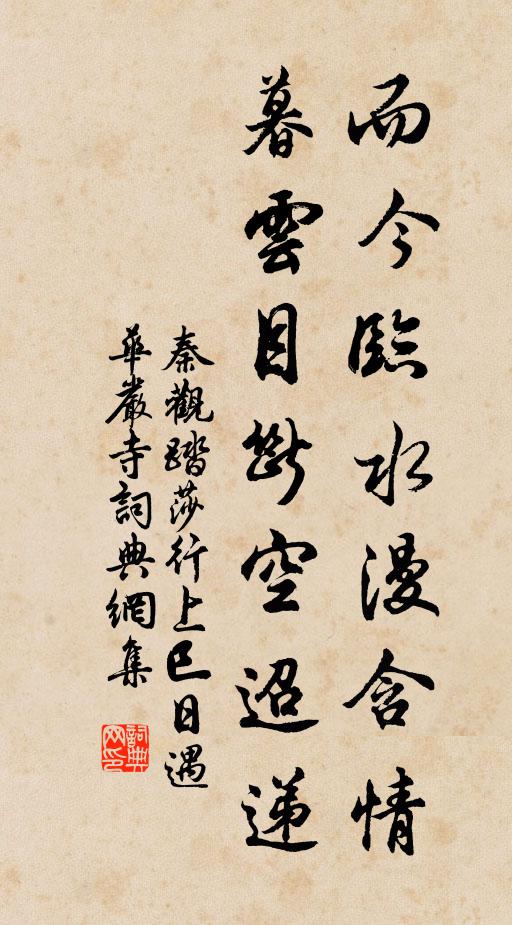 而今臨水漫含情
暮雲目斷空迢递
秦觀踏莎行上巳日遇
華嚴寺詞典網集
詞典网印